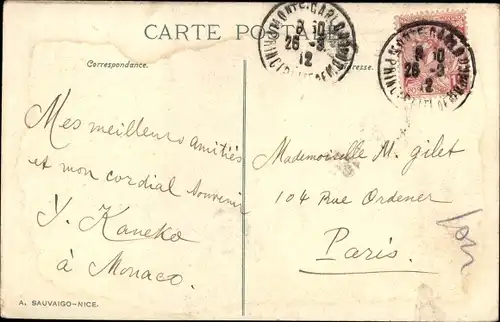 CARTE POSTALE
Correspondance.
Adresse.
MONTE-CARLO
8 10
26 -3
12
MONTE-CARLO
8 10
26 -3
12
Mes meilleurs amitiés
et mon cordial Souvenir
Y. Kaneko
à Monaco.
Mademoiselle M. Gilet
104 Rue Ordener
Paris.
A. SAUVAIGO-NICE.